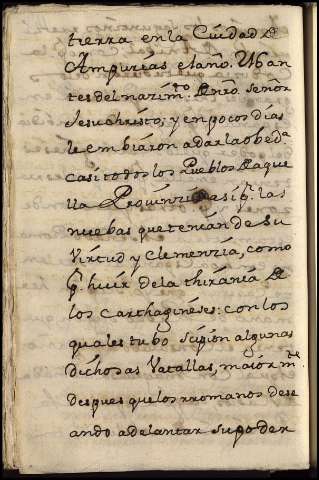 tierra en la Ciudad de
Ampurias el año. 216 an
tes del nazim.to de nro. Señor
Jesuchristo; y en pocos dias
le embiaron a dar la obed.a
casi todos los Pueblos de aque
lla Provinzia asi p.r las
nuebas que tenian de su
Virtud y Clemenzia, como
p.r huir de la thirania de
los carthagineses: con los
quales tubo Scipion algunas
dichosas Vatallas, maiorm.te
despues que los rromanos dese
ando adelantar su poder